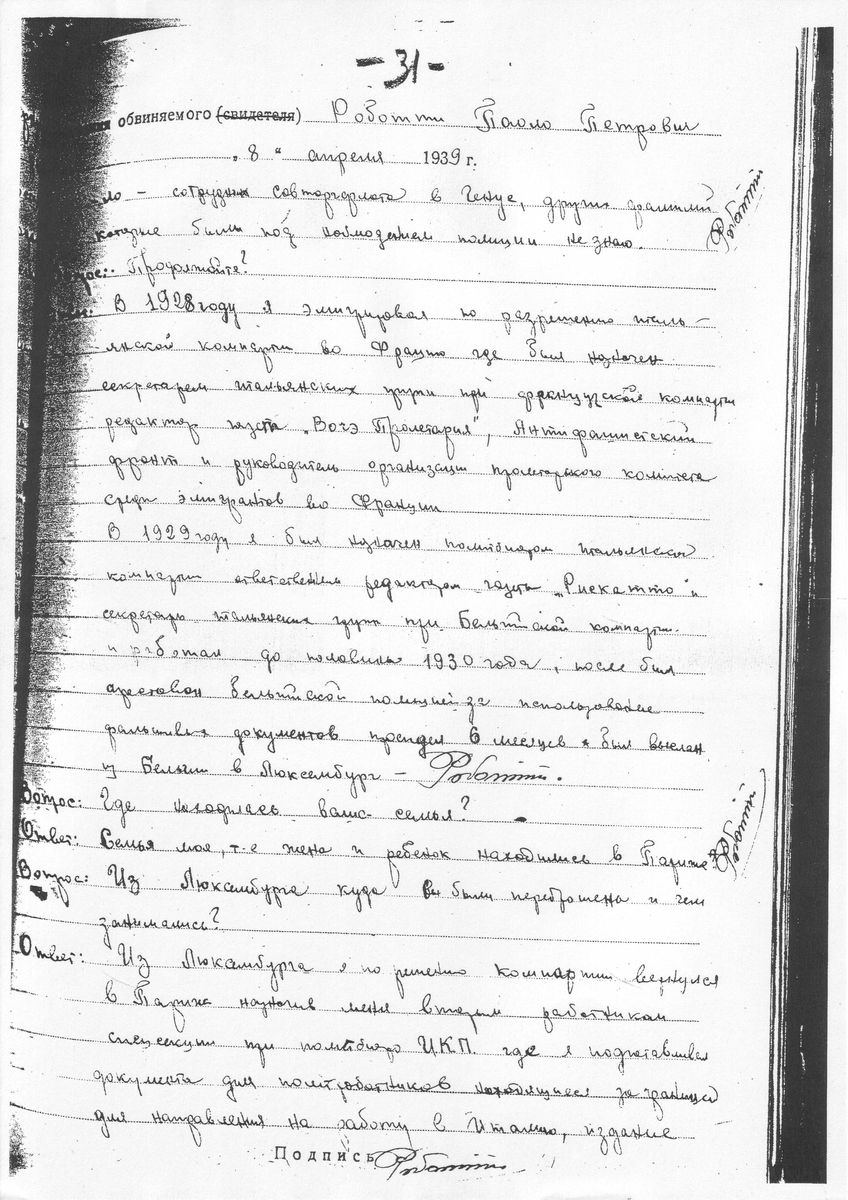 -31-
обвиняемого (свидетеля) Роботти Паоло Петрович
„8“ апреля 1939 г.
– сотрудник Совторгфлота в Генуе, других фамилий
которые были под наблюдением полиции не знаю.
Роботти
Продолжайте?
В 1928 году я эмигрировал по разрешению италь–
янской компарти во Францию где был назначен
секретарем итальянских групп при французской компарти
редактор газета „Вочэ Пролетария", Антифашистский
фронт и руководитель организации пролетарского комитета
среди эмигрантов во Франции
В 1929 году я был назначен политбюром итальянской
компарти ответственем редактером газета „Рискатто" и
секретарь итальянских групп при Бельгийской компарти.
и работал до половины 1930 года, после был
арестован бельгийской полицией за использование
фальшивых документов просидел 6 месяцев и был выслан
из Бельгии в Люксембург – Роботти.
Вопрос: Где находилась ваша семья?
Ответ: Семья моя, т-е жена и ребенок находились в Париже
Роботти
Вопрос: Из Люксембурга куда вы были переброшена и чем
занимались?
Ответ: Из Люксембурга я по решению компартии вернулся
в Париж назначив меня вторым работником
спецсекции при политбюро ИКП. где я подготавливал
документа для политработников находящиеся за границей
для направления на работу в Италию, издание
Подпись Роботти